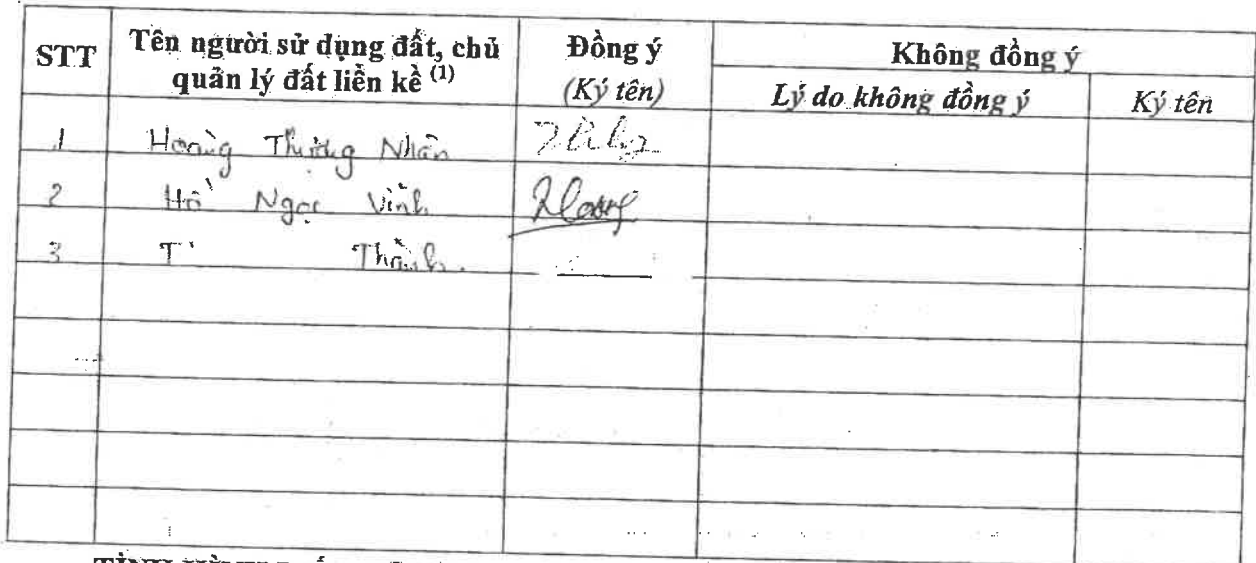 STT Tên người sử dụng đất, chủ quản lý đất liền kề (1) Đồng ý (Ký tên) Không đồng ý
Lý do không đồng ý Ký tên
1 Hoàng Thượng Nhân
2 Hồ Ngọc Vinh
3 Thành.